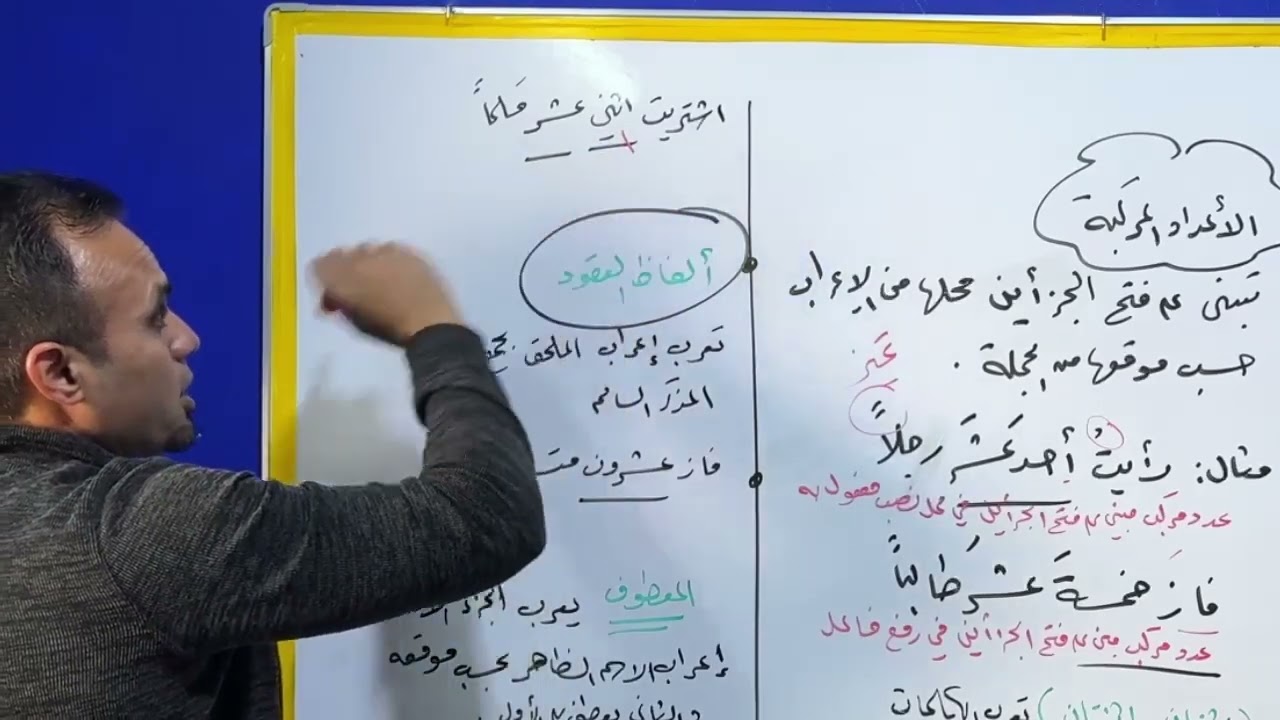 الأعداد المركَبة
تبنى على فتح الجزأين محلها من الإعراب
حسب موقعها من الجملة .
تميز
مثال: رأيتُ أحدَ عَشَرَ رجلاً
عدد مركب مبني على فتح الجزأين في محل نصب مفعول به
فازَ خمسةَ عشرَ طالباً
عدد مركب مبني على فتح الجزأين في رفع فاعل
تعرب
اشتريت اثني عشر قلماً
ألفاظ العقود
تعرب إعراب الملحق بجمع
المذكر السالم
فاز عشرون
المعطوف يعرب الجزء
إعراب الاسم الظاهر بحسب موقعه
والثاني